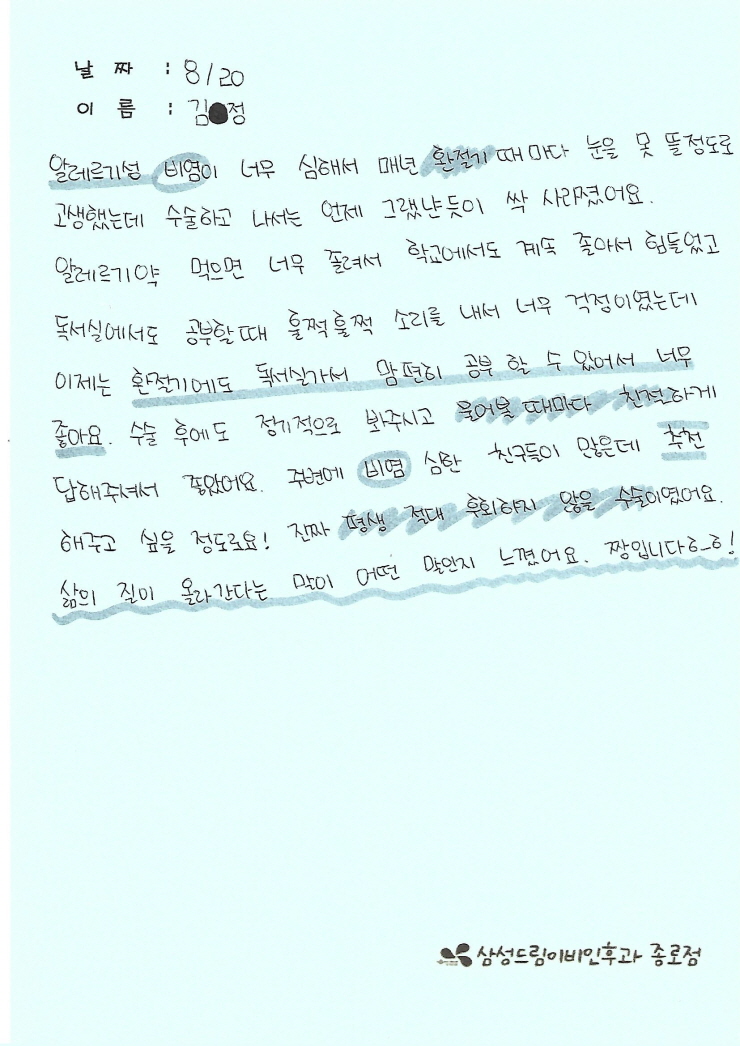 날 짜 : 8/20
이 름 : 김●정
알레르기성 비염이 너무 심해서 매년 환절기 때마다 눈을 못 뜰정도로
고생했는데 수술하고 나서는 언제 그랬냔듯이 싹 사라졌어요.
알레르기약 먹으면 너무 졸려서 학교에서도 계속 졸아서 힘들었고
독서실에서도 공부할때 훌쩍훌쩍 소리를 내서 너무 걱정이였는데
이제는 환절기에도 독서실가서 맘편히 공부 할 수 있어서 너무
좋아요. 수술 후에도 정기적으로 봐주시고 물어볼 때마다 친절하게
답해주셔서 좋았어요. 주변에 비염 심한 친구들이 많은데 추천
해주고 싶을 정도로요! 진짜 평생 절대 후회하지 않을 수술이였어요.
삶의 질이 올라간다는 말이 어떤 말인지 느꼈어요. 짱입니다ㅎ_ㅎ!
삼성드림이비인후과 종로점